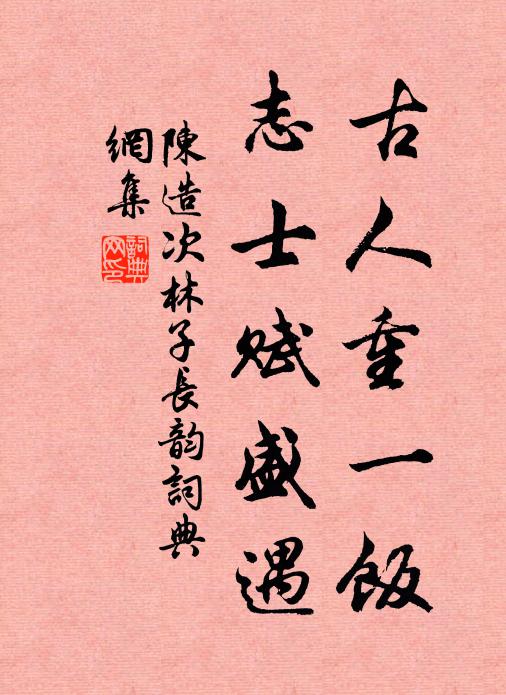 古人重一飯
志士賦盛遇
陳造次林子長韵詞典
網集
詞典網印